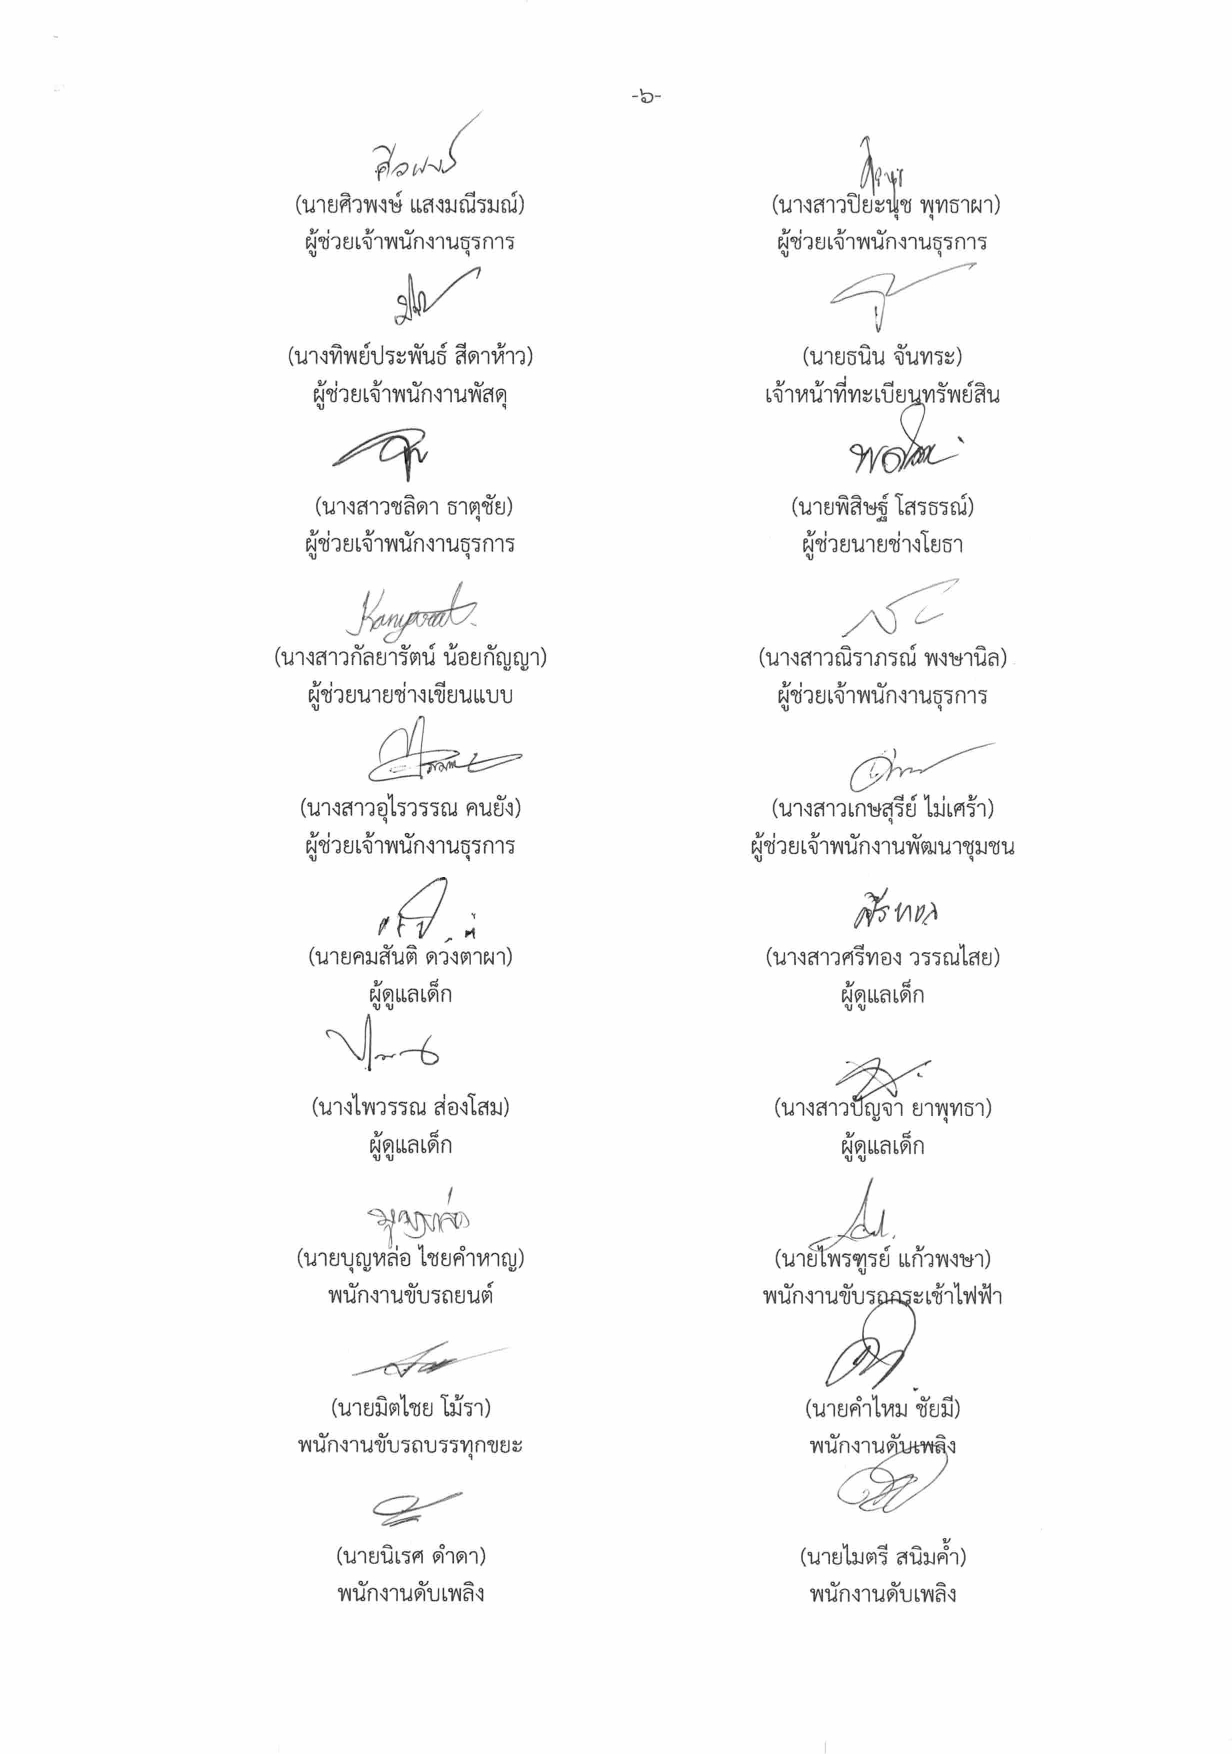 -๖-
(นายศิวพงษ์ แสงมณีรมณ์) (นางสาวปิยะนุช พุทธาผา)
ผู้ช่วยเจ้าพนักงานธุรการ ผู้ช่วยเจ้าพนักงานธุรการ
(นางทิพย์ประพันธ์ สีดาห้าว) (นายธนิน จันทระ)
ผู้ช่วยเจ้าพนักงานพัสดุ เจ้าหน้าที่ทะเบียนทรัพย์สิน
(นางสาวชลิดา ธาตุชัย) (นายพิสิษฐ์ โสรธรณ์)
ผู้ช่วยเจ้าพนักงานธุรการ ผู้ช่วยนายช่างโยธา
(นางสาวกัลยารัตน์ น้อยกัญญา) (นางสาวณิราภรณ์ พงษานิล)
ผู้ช่วยนายช่างเขียนแบบ ผู้ช่วยเจ้าพนักงานธุรการ
(นางสาวอุไรวรรณ คนยัง) (นางสาวเกษสุรีย์ ไม่เศร้า)
ผู้ช่วยเจ้าพนักงานธุรการ ผู้ช่วยเจ้าพนักงานพัฒนาชุมชน
(นายคมสันติ ดวงตาผา) (นางสาวศรีทอง วรรณไสย)
ผู้ดูแลเด็ก ผู้ดูแลเด็ก
(นางไพวรรณ ส่องโสม) (นางสาวปัญจา ยาพุทธา)
ผู้ดูแลเด็ก ผู้ดูแลเด็ก
(นายบุญหล่อ ไชยคำหาญ) (นายไพรฑูรย์ แก้วพงษา)
พนักงานขับรถยนต์ พนักงานขับรถกระเช้าไฟฟ้า
(นายมิตไชย โม้รา) (นายคำไหม ชัยมี)
พนักงานขับรถบรรทุกขยะ พนักงานดับเพลิง
(นายนิเรศ ดำดา) (นายไมตรี สนิมค้ำ)
พนักงานดับเพลิง พนักงานดับเพลิง